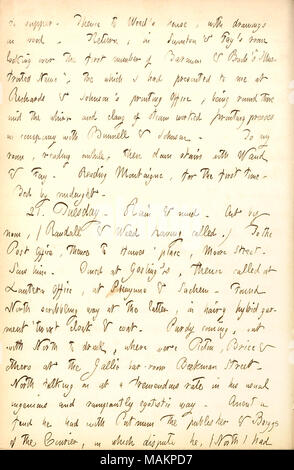 to supper. Thence to Wood's house, with drawings
on wood. Return, in Swinton & Fay's room
looking over the first number of Barnum & Beach's Illus-
trated News, the which I had presented to me at
Richards & Johnson's printing office, being round there
mid the whirr and clang of steam worked printing presses
in company with Bunnell & Johnson. To my
room, reading awhile, then down stairs with Waud
& Fay. Reading Montaigne, for the first time.
Bed by midnight.
27. Tuesday. Rain & mud. Out by
noon, (Randall & Waud having called.) To the
Post Office, thence to Hawes' place, Mercer Street.
Saw him. Dined at Gosling's, thence called at
Lantern office, at and Sachem. Found
North scribbling way at the latter, in hairy hybrid gar-
ment 'twixt cloak & coat. Purdy coming, out
with North to drink, where were Picton, Brice &
others at the Gallic bar-room Beekman Street.
North talking on at a tremendous rate in his usual
ingenious and rampantly egotistic way. Anent a
feud he had with Putnam the publisher & Briggs
of the Courier, in which dispute he, (North) had
alamy
Image ID: MAKPD7
www.alamy.com